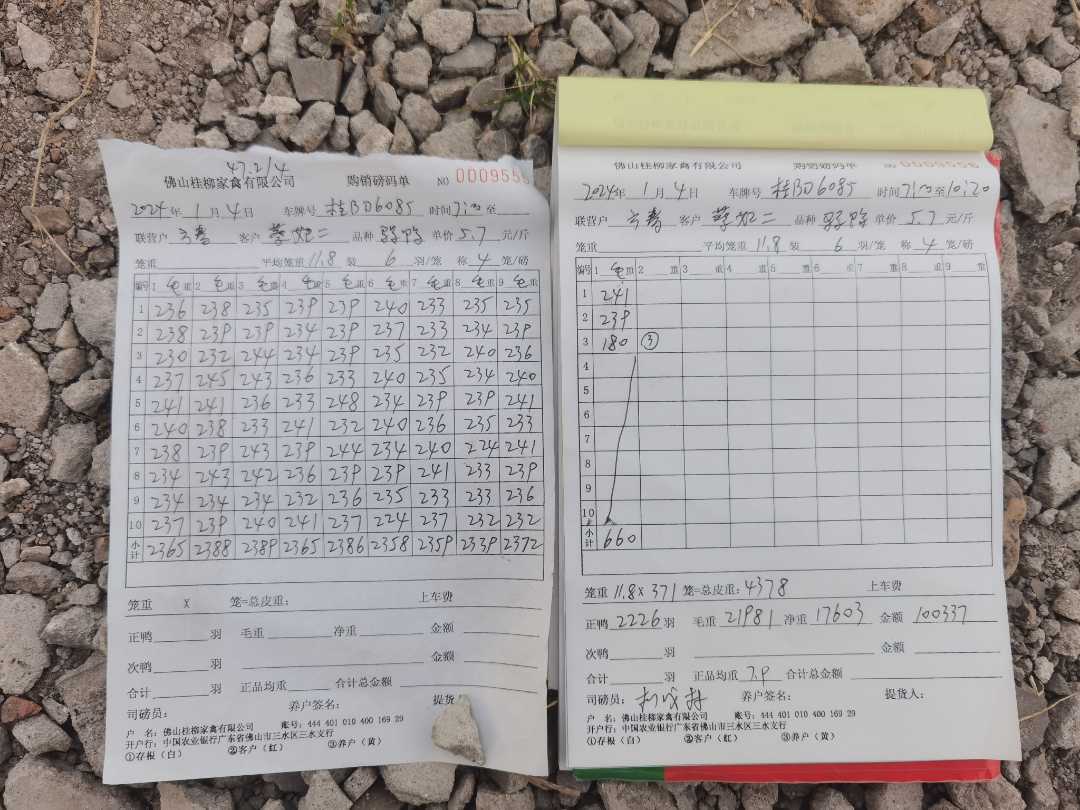 47.2/4
佛山桂柳家禽有限公司 购销磅码单 NO 0009555
2024年1月4日 车牌号 桂BD6085 时间7:00至
联营户 客户 品种 单价 5.7 元/斤
笼重 平均笼重11.8 装 6 羽/笼 称 4 笼/磅
编号 1 毛重 2 毛重 3 毛重 4 毛重 5 毛重 6 毛重 7 毛重 8 毛重 9 毛重
1 236 238 235 239 239 240 233 235 235
2 238 239 239 234 239 237 233 234 239
3 230 232 244 234 239 235 232 240 236
4 237 245 243 236 233 240 235 234 240
5 241 241 236 233 248 234 239 239 241
6 240 238 233 241 232 240 236 235 233
7 238 239 243 239 244 234 240 224 241
8 234 243 242 236 239 239 241 233 239
9 234 234 234 232 236 235 233 233 236
10 237 239 240 241 237 224 237 232 232
小计 2365 2388 2389 2365 2386 2358 2359 2339 2372
笼重 X 笼=总皮重: 上车费
正鸭 羽 毛重 净重 金额
次鸭 羽 金额
合计 羽 正品均重 合计总金额
司磅员: 养户签名: 提货
户 名: 佛山桂柳家禽有限公司 账号: 444 401 010 400 169 29
开户行: 中国农业银行广东省佛山市三水区三水支行
①存根(白) ②客户(红) ③养户(黄)
佛山桂柳家禽有限公司 购销磅码单 NO 0009556
2024年1月4日 车牌号 桂BD6085 时间7:00至10:20
联营户 客户 品种 单价 5.7 元/斤
笼重 平均笼重 11.8 装 6 羽/笼 称 4 笼/磅
编号 1 毛重 2 重 3 重 4 重 5 重 6 重 7 重 8 重 9 重
1 241
2 239
3 180 ③
4
5
6
7
8
9
10
小计 660
笼重 11.8 x 371 笼=总皮重: 4378 上车费
正鸭 2226 羽 毛重 21981 净重 17603 金额 100337
次鸭 羽 金额
合计 羽 正品均重 7.9 合计总金额
司磅员: 养户签名: 提货人:
户 名: 佛山桂柳家禽有限公司 账号: 444 401 010 400 169 29
开户行: 中国农业银行广东省佛山市三水区三水支行
①存根(白) ②客户(红) ③养户(黄)